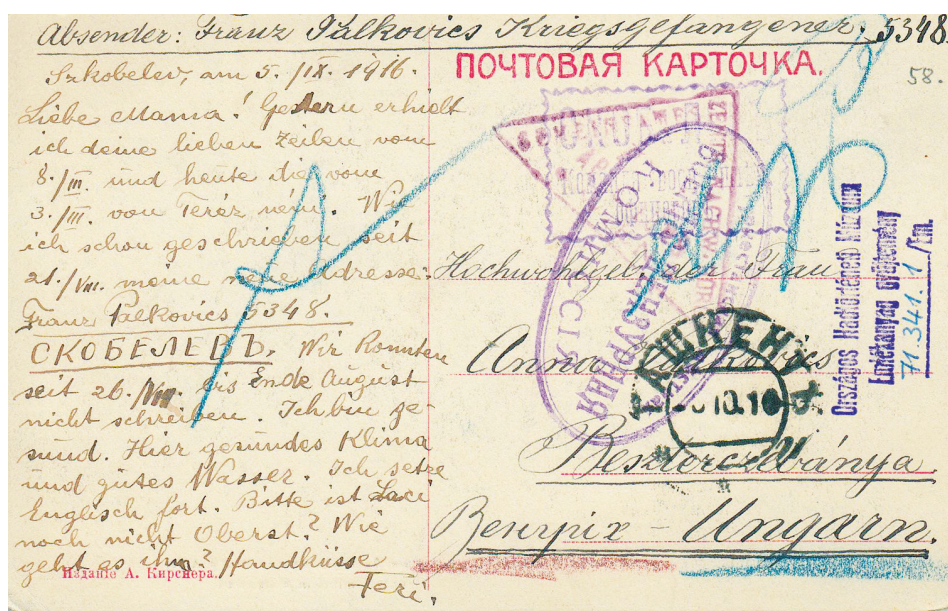 Absender: Franz Palkovics Kriegsgefangener, 5348.
ПОЧТОВАЯ КАРТОЧКА.
58.
Szkobelev, am 5. /IX. 1916.
Liebe Mama! Gestern erhielt
ich deine lieben Zeilen vom
8./III. und heute die vom
3./III. von Terez néni. Wie
ich schon geschrieben seit
21./VIII. meine neue Adresse:
Franz Palkovics 5348.
СКОБЕЛЕВЪ. Wir konnten
seit 26./VIII. bis Ende August
nicht schreiben. Ich bin ge-
sund. Hier gesundes Klima
und gutes Wasser. Ich setze
Englisch fort. Bitte ist Laci
noch nicht Oberst? Wie
geht es ihm? Handküsse
Feri.
Изданіе А. Кирснера.
Hochwohlgeb. der Frau
Anna Palkovics
Beszterczebánya
Венгрія – Ungarn.
ТАШКЕНТ
10.16
Országos Hadtörténeti Múzeum
71.341.1/Em.